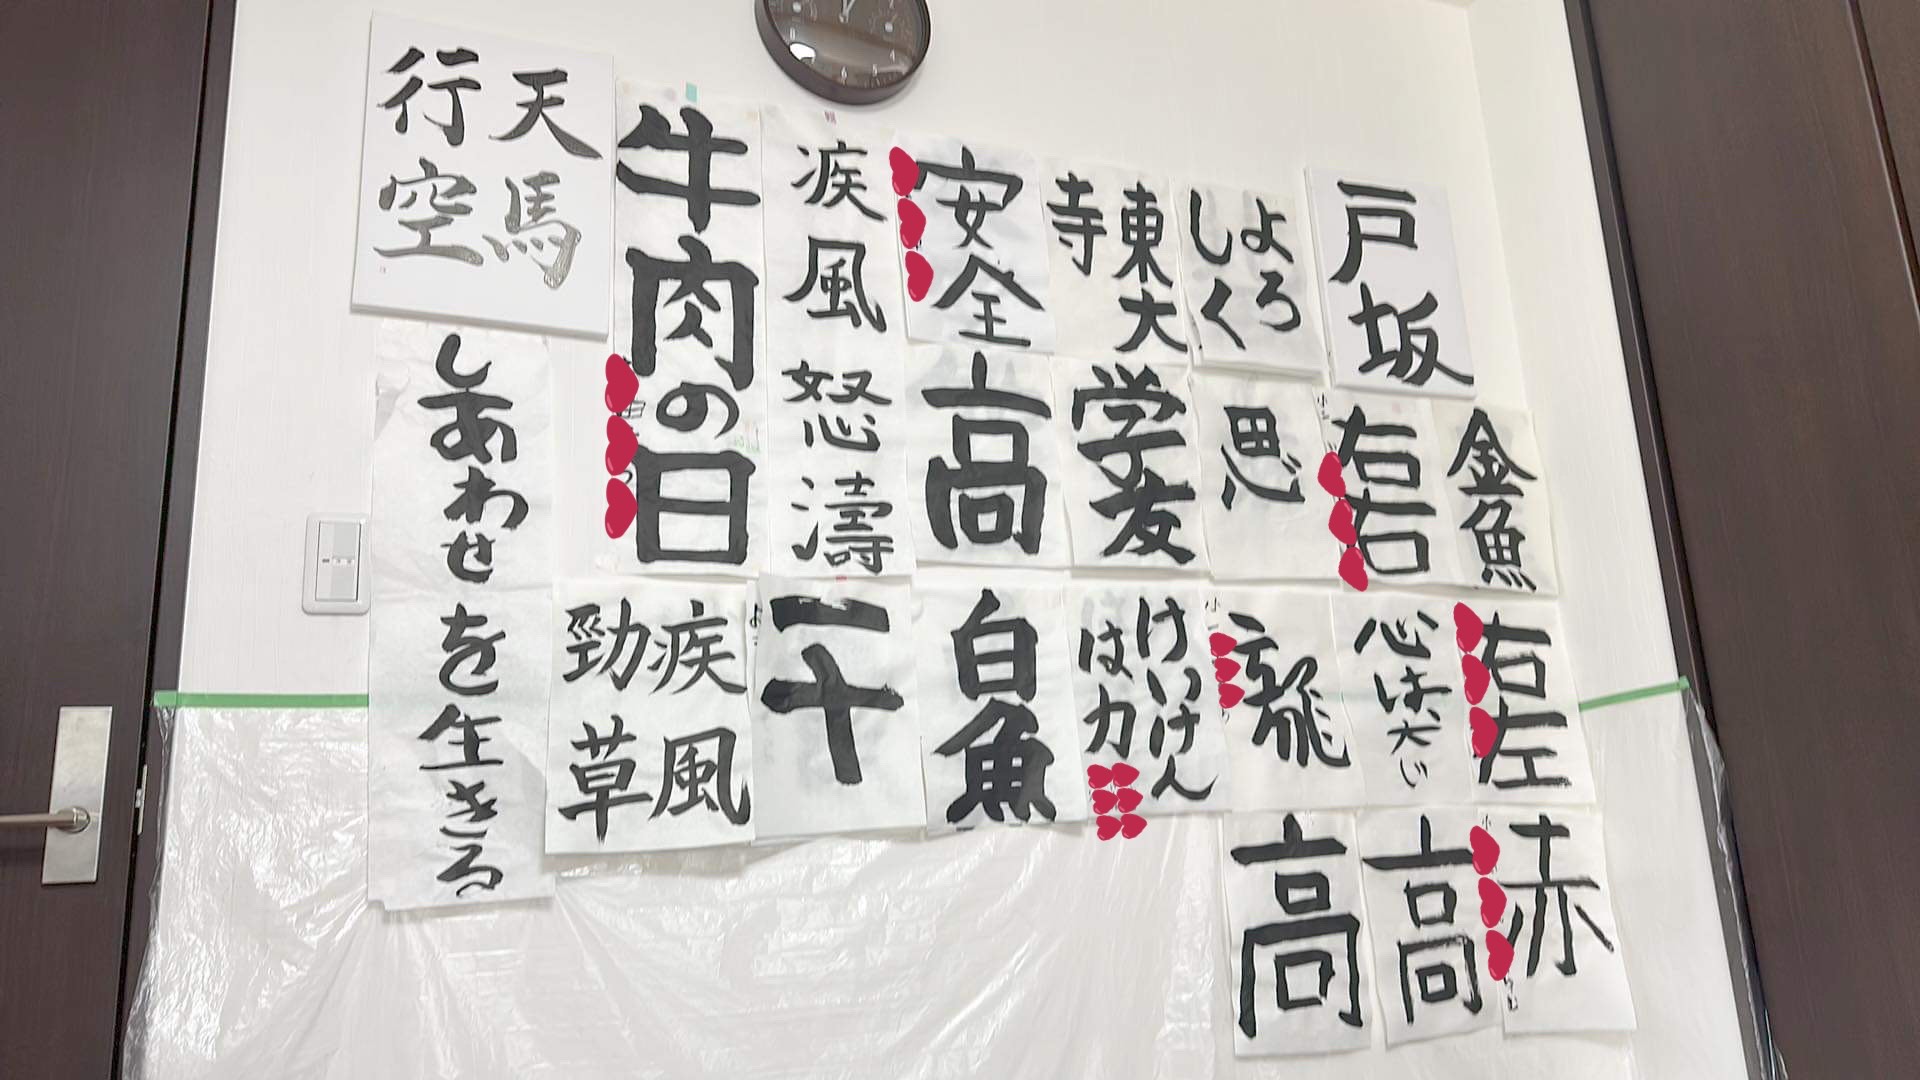 戸坂
よろしく
東大寺
安全
疾風怒濤
牛肉の日
天馬行空
金魚
右右
思
学友
高
しあわせを生きる
右左
心は大い
龍
けいけんは力
白魚
二十
疾風勁草
赤
高
高